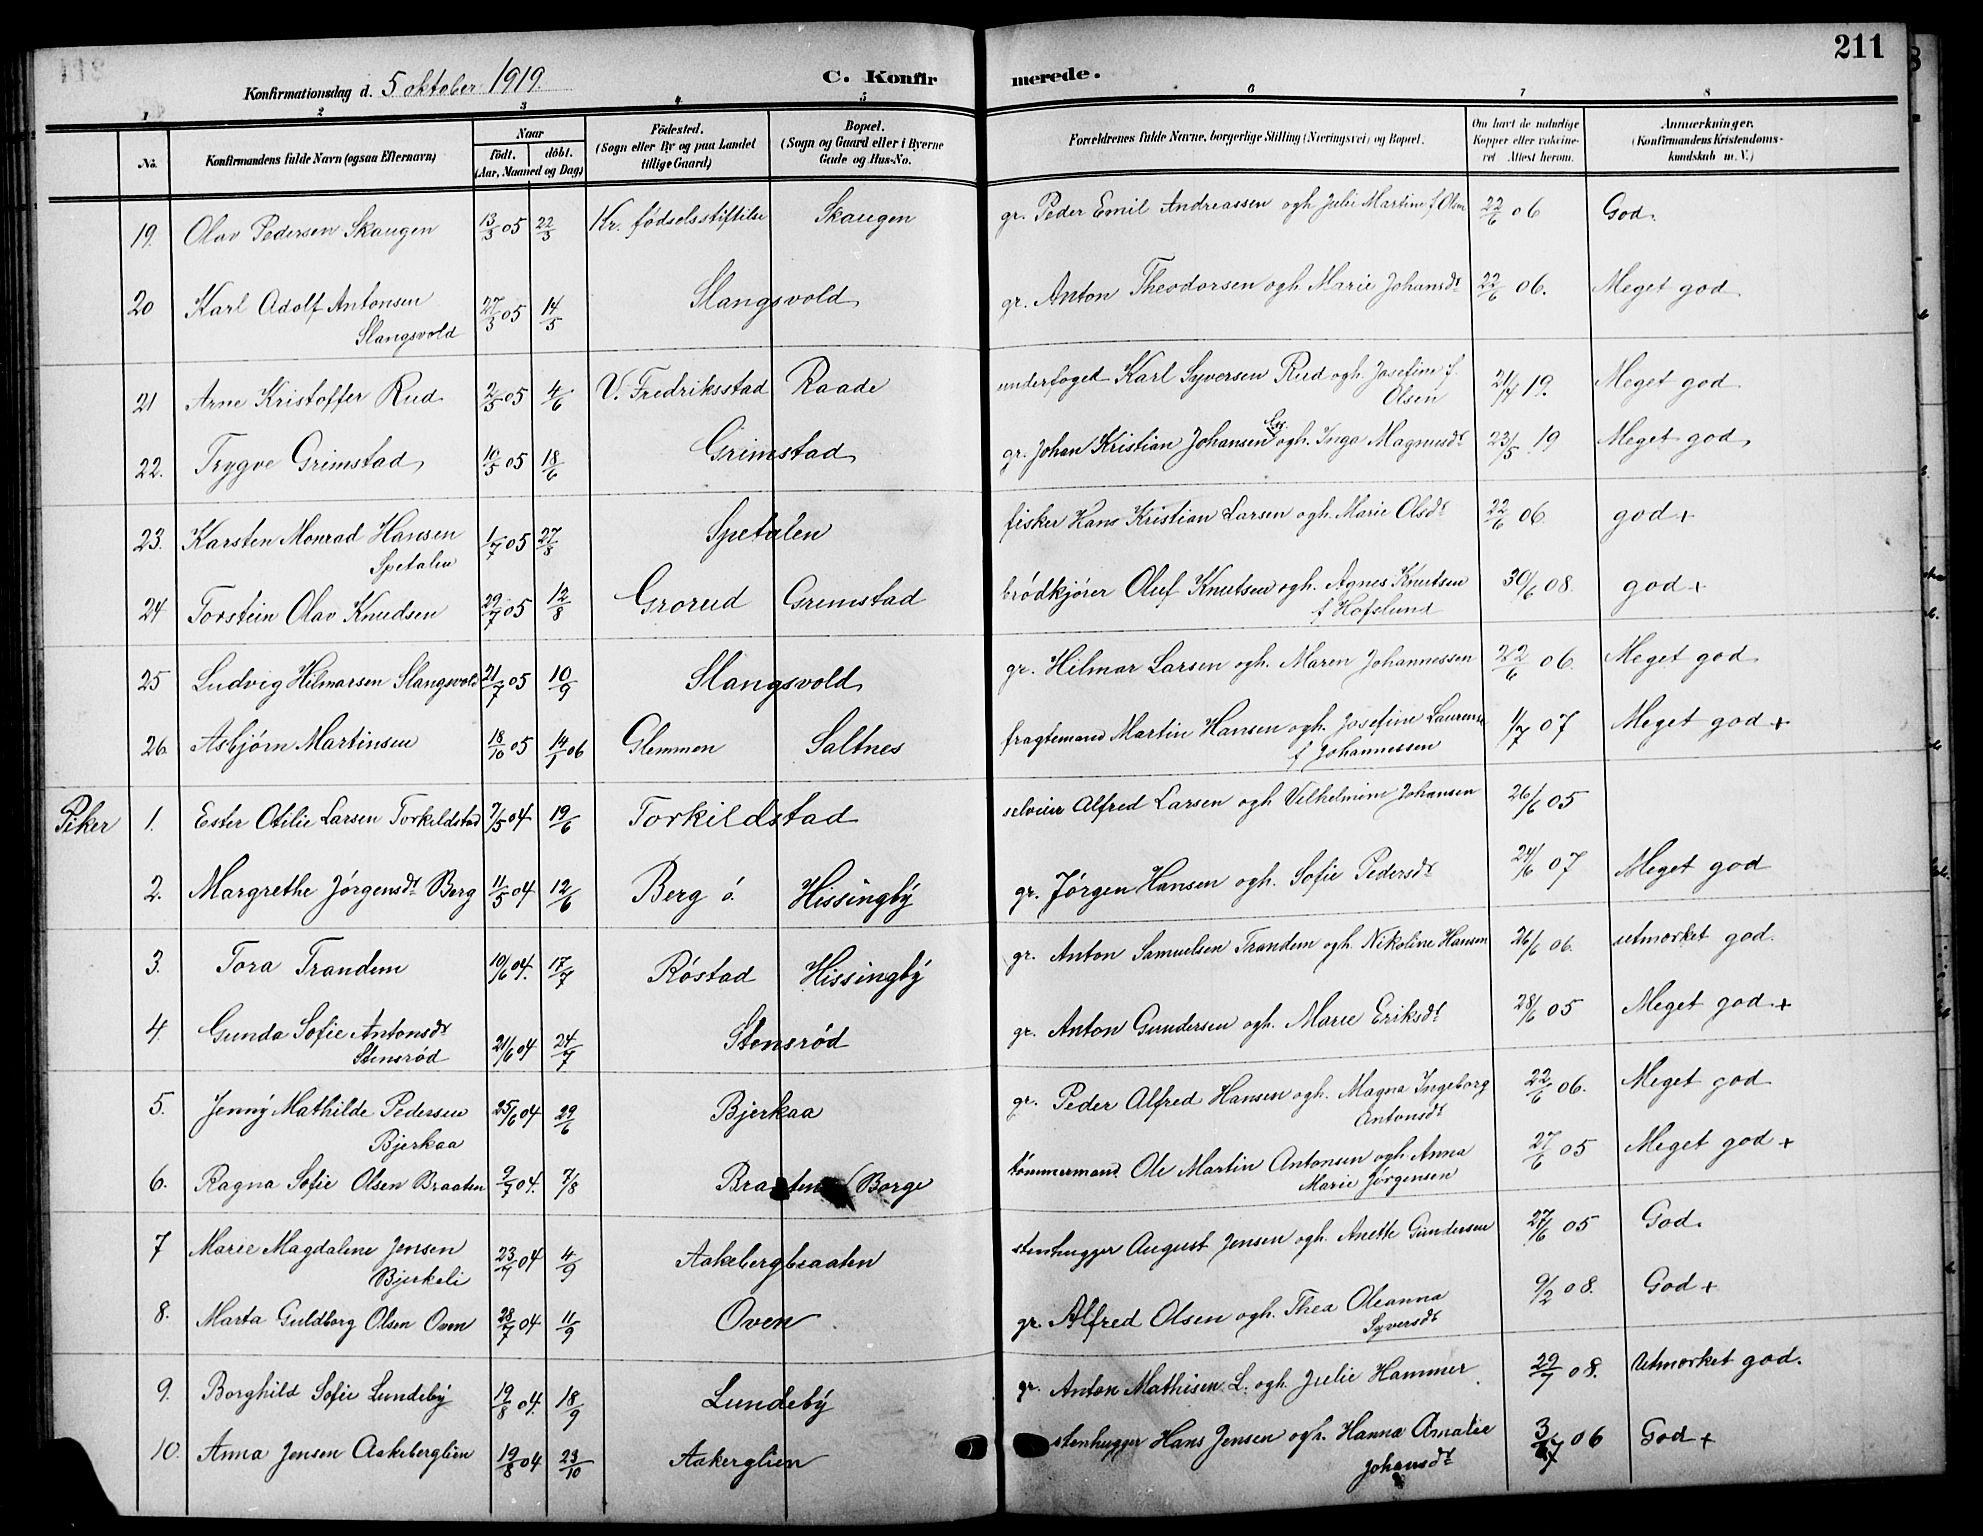 211
Konfirmationsdag d. 5 oktober 1919.
C. Konfirmerede.
1 2 3 4 5 6 7 8
No.
Konfirmandens fulde Navn (ogsaa Efternavn)
Naar
födt. döbt.
(Aar, Maaned og Dag)
Födested.
(Sogn eller By og paa Landet
tillige Gaard)
Bopæl.
(Sogn og Gaard eller i Byerne
Gade og Hus-No.
Forældrenes fulde Navne, borgerlige Stilling (Næringsvei) og Bopæl.
Om havt de naturlige
Kopper eller vakcine-
ret Attest herom.
Anmærkninger.
(Konfirmandens Kristendoms-
kundskab m. V.)
19. Olav Pedersen Skaugen 13/3 05 22/3 Kr. fødselsstiftelse Skaugen gr. Peder Emil Andreassen ogh Julie Martine f Olsen 22/6 06 God.
20 Karl Adolf Antonsen 27/3 05 14/5 Slangsvold gr. Anton Theodorsen ogh Marie Johansdt 22/6 06. Meget god
Slangsvold
21 Arne Kristoffer Rud 2/5 05 4/6 V. Fredriksstad Raade underfoged Karl Syversen Rud ogh. Josefine f. 21/4 19. Meget god
Olsen
22. Trygve Grimstad 10/5 05 18/6 Grimstad gr. Johan Kristian Johansen ogh. Inga Magnusdt 23/5 19 Meget god
23. Karsten Monrad Hansen 1/7 05 27/8 Spetalen fisker Hans Kristian Larsen ogh. Marie Olsdt 22/6 06 god +
Spetalen
24 Torstein Olav Knudsen 29/7 05 12/8 Grorud Grimstad brødkjører Oluf Knutsen ogh. Agnes Knutsen 30/6 08. god +
f Hofslund
25 Ludvig Hilmarsen Slangsvold 21/7 05 10/9 Slangsvold gr. Hilmar Larsen ogh. Maren Johannessen 22/6 06. Meget god
26. Asbjørn Martinsen 18/10 05 14/1 06 Glemmen Saltnes fragtemand Martin Hansen ogh. Josefine Laurense 1/7 07 Meget god +
f Johannessen
Piker 1. Ester Otilie Larsen Torkildstad 7/5 04 19/6 Torkildstad selveier Alfred Larsen ogh Vilhelmine Johansen 26/6 05
2. Margrethe Jørgensdt Berg 11/5 04 12/6 Berg ö. Hissingby gr. Jørgen Hansen ogh. Sofie Pedersdt 24/6 07 Meget god
3. Tora Trandem 10/6 04. 17/7 Röstad Hissingby gr. Anton Samuelsen Trandem ogh. Nikoline Hansen 26/6 06. utmerket god.
4. Gunda Sofie Antonsdt 21/6 04 24/7 Stensrød gr. Anton Gundersen ogh. Marie Eriksdt 28/6 05 Meget god +
Stensrød
5. Jenny Mathilde Pedersen 25/6 04 29/6 Bjerkaa gr. Peder Alfred Hansen ogh. Magna Ingeborg 22/6 06. Meget god
Bjerkaa Antonsdt
6. Ragna Sofie Olsen Braaten 9/7 04. 7/8 Braaten (Borge tömmermand. Ole Martin Antonsen ogh Anna 27/6 05 Meget god +
Marie Jørgensen
7 Marie Magdalene Jensen 23/7 04 4/9 Aakebergbraaten stenhugger August Jensen ogh. Anette Gundersen 27/6 05 God.
Bjerkeli
8. Marta Guldborg Olsen Oven 28/7 04 11/9 Oven gr. Alfred Olsen ogh. Thea Oleanna 9/2 08. God +
Syversdt
9. Borghild Sofie Lundeby 19/8 04. 18/9 Lundeby gr. Anton Mathisen L. ogh. Julie Hammer 29/7 08. Utmerket god.
10. Anna Jensen Aakeberglien 19/8 04 23/10 Aakerglien stenhugger Hans Jensen ogh. Hanna Amalie 3/7 06 God +
Johansdt